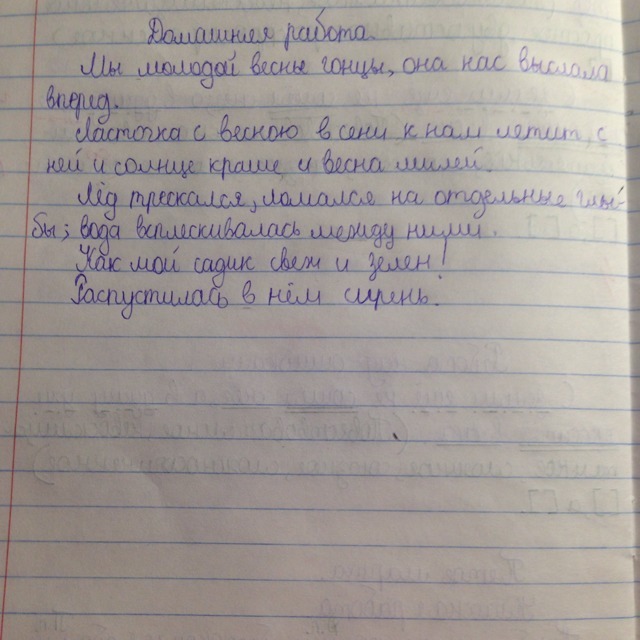 Домашняя работа.
Мы молодой весны гонцы, она нас выслала
вперед.
Ласточка с весною в сени к нам летит, с
ней и солнце краше и весна милей.
Лёд трескался, ломался на отдельные глы-
бы; вода всплескивалась между ними.
Как мой садик свеж и зелен!
Распустилась в нём сирень.